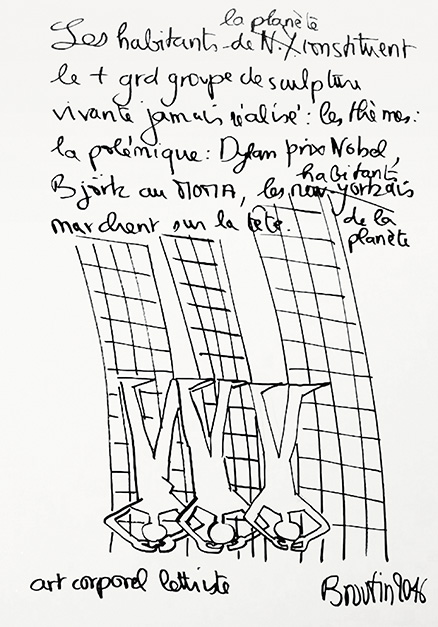 la planète
Les habitants de N.Y. constituent
le + grd groupe de sculpture
vivante jamais réalisé : les thèmes :
la polémique : Dylan prix Nobel,
habitants
Björk au MOMA, les new-yorkais
marchent sur la tête.
de la
planète
art corporel lettriste
Broutin 2016